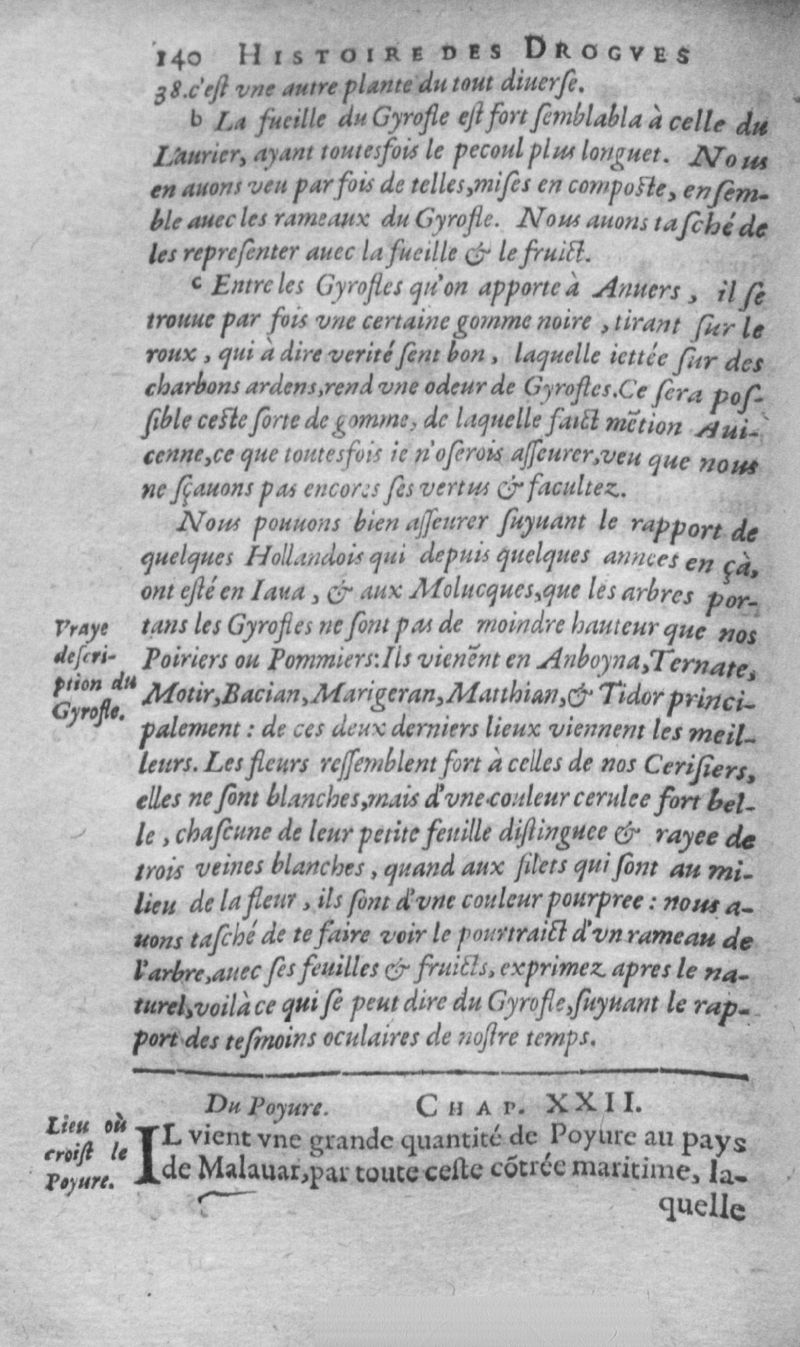 140 HISTOIRE DES DROGVES
38. c'est vne autre plante du tout diuerse.
b La fueille du Gyrofle est fort semblabla à celle du
L'aurier, ayant toutesfois le pecoul plus longuet. Nous
en auons veu par fois de telles, mises en composte, ensem-
ble auec les rameaux du Gyrofle. Nous auons tasché de
les representer auec la fueille & le fruict.
c Entre les Gyrofles qu'on apporte à Anuers, il se
trouue par fois vne certaine gomme noire, tirant sur le
roux, qui à dire verité sent bon, laquelle iettée sur des
charbons ardens, rend vne odeur de Gyrofles. Ce sera pos-
sible ceste sorte de gomme, de laquelle faict mẽtion Aui-
cenne, ce que toutesfois ie n'oserois asseurer, veu que nous
ne sçauons pas encores ses vertus & facultez.
Nous pouuons bien asseurer suyuant le rapport de
quelques Hollandois qui depuis quelques annees en çà,
ont esté en Iaua, & aux Molucques, que les arbres por-
tans les Gyrofles ne sont pas de moindre hauteur que nos
Poiriers ou Pommiers: Ils vienẽt en Anboyna, Ternate,
Motir, Bacian, Marigeran, Matthian, & Tidor princi-
palement: de ces deux derniers lieux viennent les meil-
leurs. Les fleurs ressemblent fort à celles de nos Cerisiers,
elles ne sont blanches, mais d'vne couleur cerulee fort bel-
le, chascune de leur petite feuille distinguee & rayee de
trois veines blanches, quand aux filets qui sont au mi-
lieu de la fleur, ils sont d'vne couleur pourpree: nous a-
uons tasché de te faire voir le pourtraict d'vn rameau de
l'arbre, auec ses feuilles & fruicts, exprimez apres le na-
turel, voilà ce qui se peut dire du Gyrofle, suyuant le rap-
port des tesmoins oculaires de nostre temps.
Vraye
descri-
ption du
Gyrofle.
Du Poyure. CHAP. XXII.
Lieu où
croist le
Poyure.
IL vient vne grande quantité de Poyure au pays
de Malauar, par toute ceste cõtrée maritime, la-
quelle